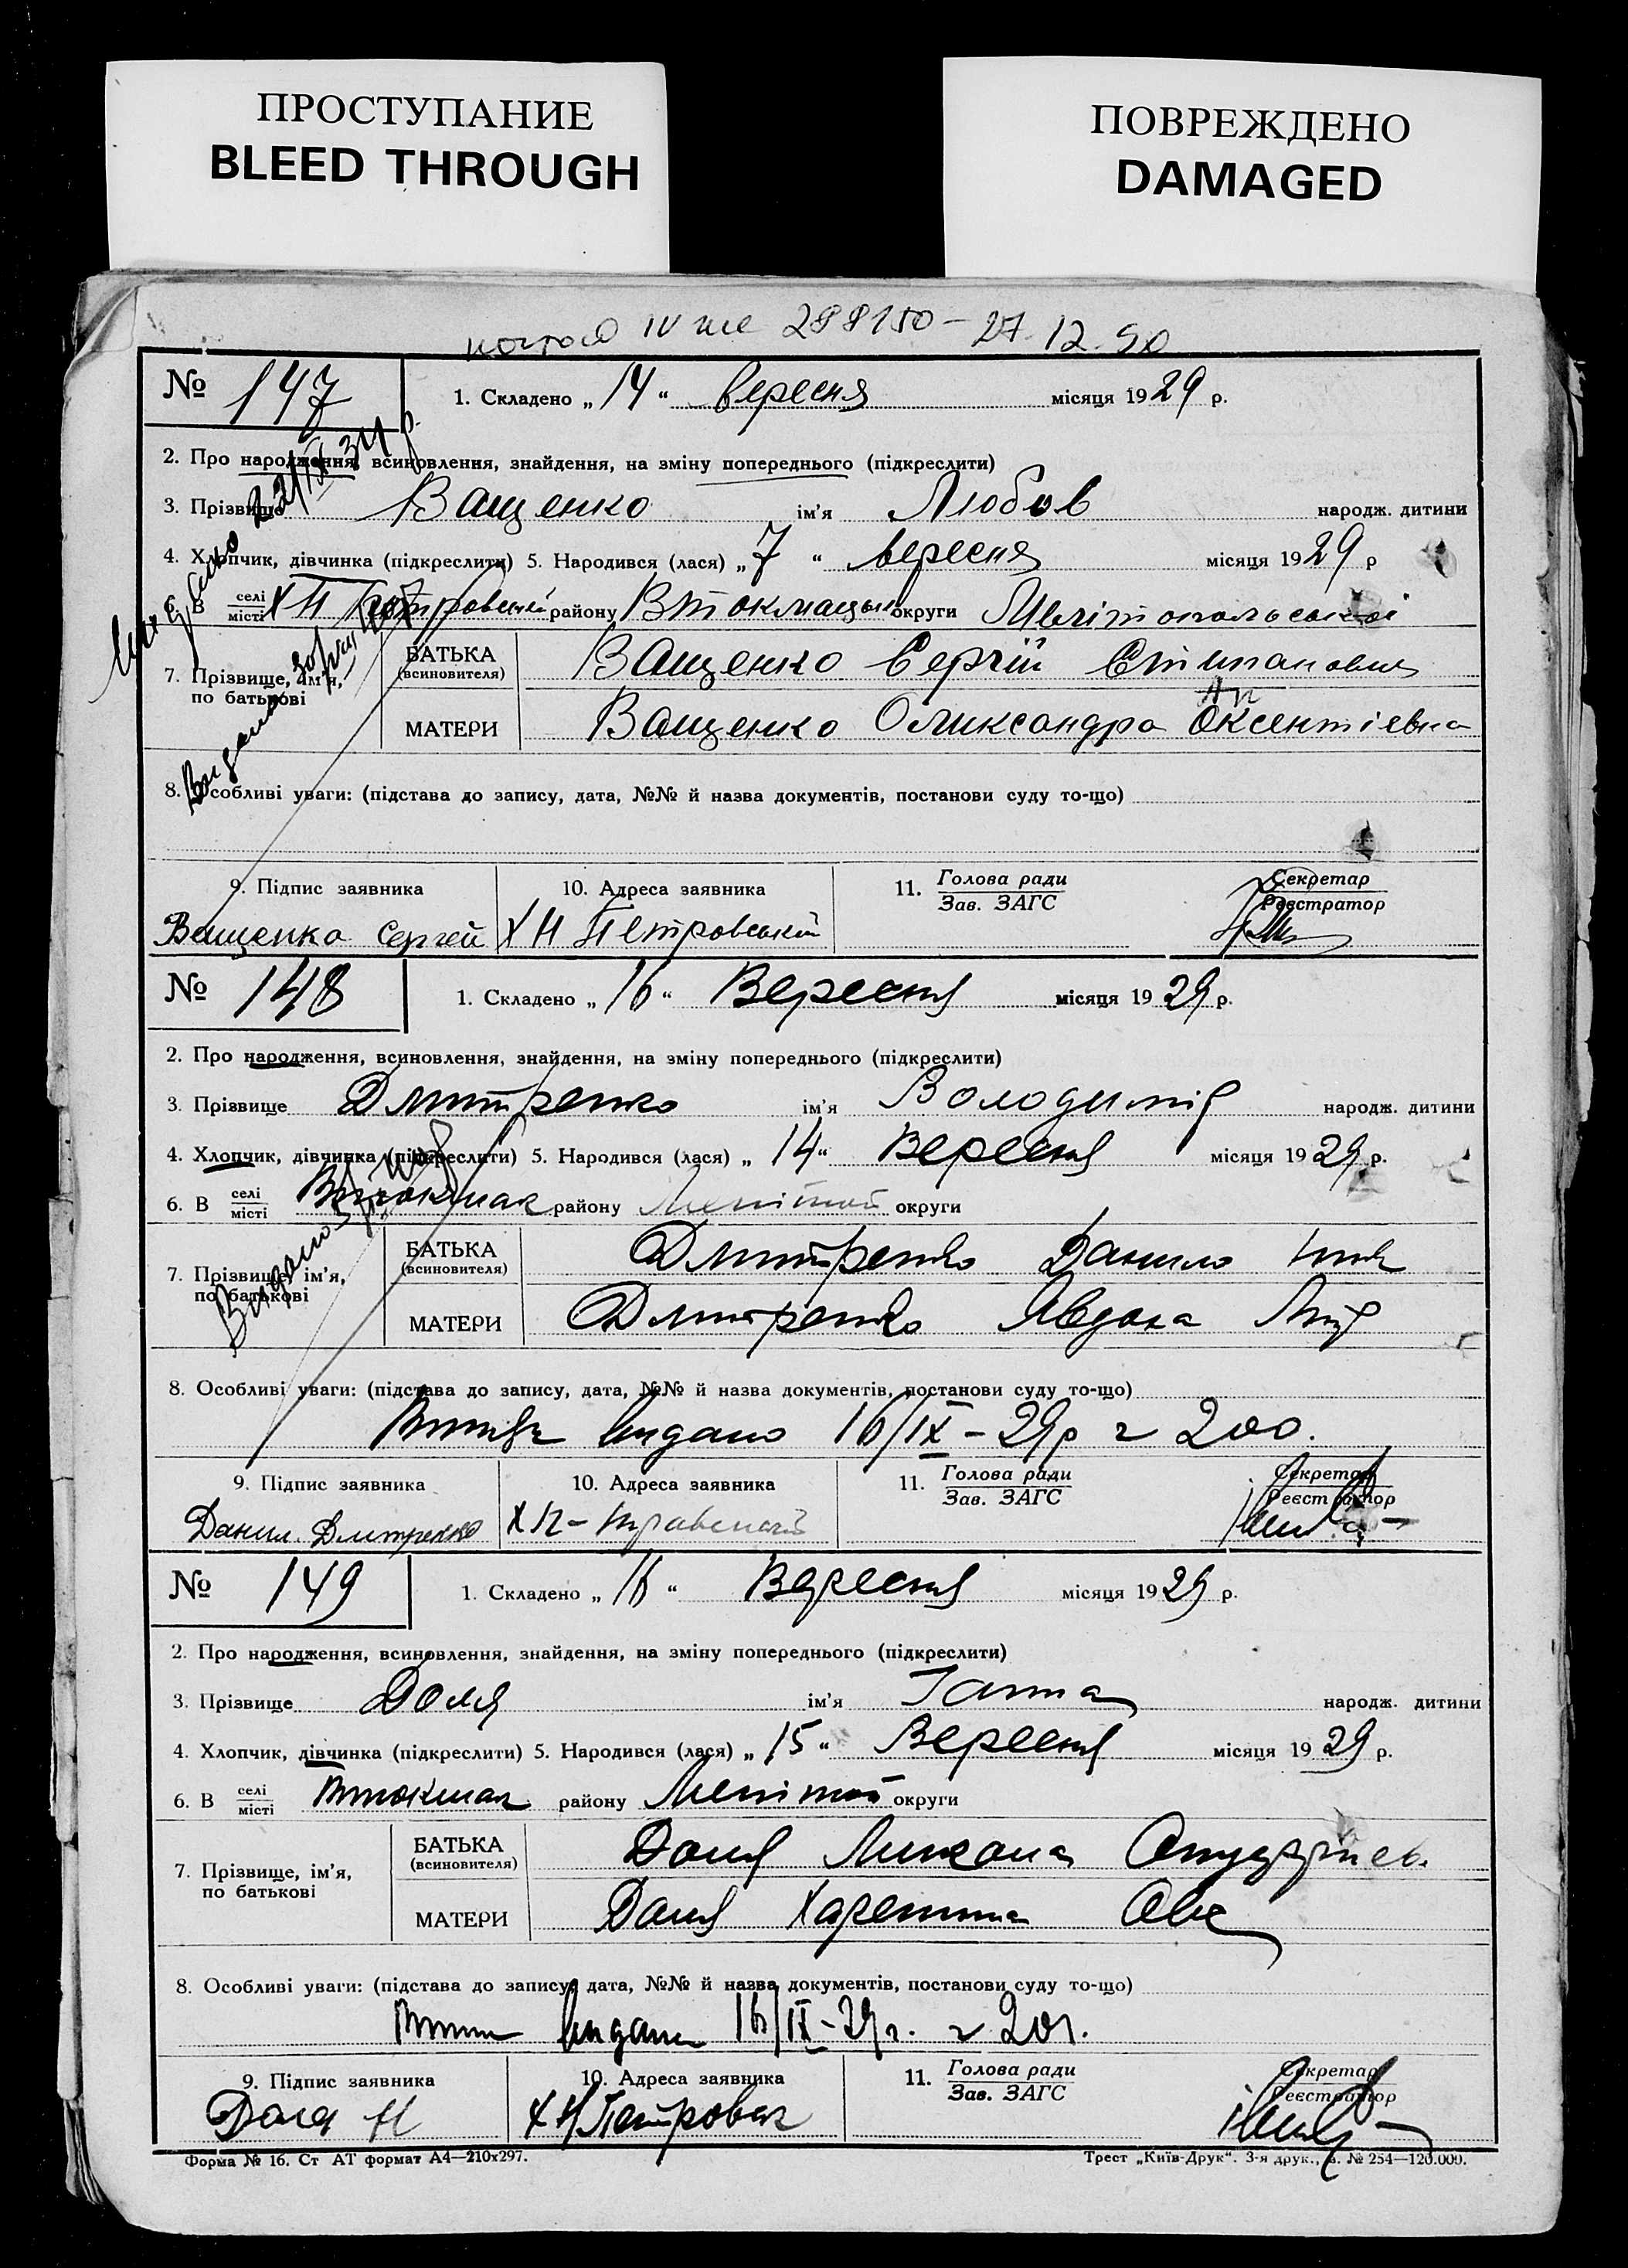 ПРОСТУПАНИЕ
BLEED THROUGH
ПОВРЕЖДЕНО
DAMAGED
IV 288150 — 27.12.90
№ 147 1. Складено „14“ вересня місяця 1929 р.
2. Про народження, всиновлення, знайдення, на зміну попереднього (підкреслити)
3. Прізвище Ващенко ім'я Любов народж. дитини
4. Хлопчик, дівчинка (підкреслити) 5. Народився (лася) „7“ вересня місяця 1929 р
6. В селі/місті Х Н Петровський району ВТокмацьк округи Мелітопольської
7. Прізвище, ім'я, по батькові
БАТЬКА (всиновителя) Ващенко Сергій Степанович
МАТЕРИ Ващенко Олександра Оксентіевна
8. Особливі уваги: (підстава до запису, дата, №№ й назва документів, постанови суду то-що)
9. Підпис заявника 10. Адреса заявника 11. Голова ради/Зав. ЗАГС Секретар/Реєстратор
Ващенко Сергей Х Н Петровський
№ 148 1. Складено „16“ Вересня місяця 1929 р.
2. Про народження, всиновлення, знайдення, на зміну попереднього (підкреслити)
3. Прізвище Дмитренко ім'я Володимір народж. дитини
4. Хлопчик, дівчинка (підкреслити) 5. Народився (лася) „14“ Вересня місяця 1929 р.
6. В селі/місті Втокмак району Меліт округи
7. Прізвище, ім'я, по батькові
БАТЬКА (всиновителя) Дмитренко Данило
МАТЕРИ Дмитренко Явдоха
8. Особливі уваги: (підстава до запису, дата, №№ й назва документів, постанови суду то-що)
видано 16/IX – 29р 200.
9. Підпис заявника 10. Адреса заявника 11. Голова ради/Зав. ЗАГС Секретар/Реєстратор
Данил. Дмитренко
№ 149 1. Складено „16“ Вересня місяця 1929 р.
2. Про народження, всиновлення, знайдення, на зміну попереднього (підкреслити)
3. Прізвище Доля ім'я Ганна народж. дитини
4. Хлопчик, дівчинка (підкреслити) 5. Народився (лася) „15“ Вересня місяця 1929 р.
6. В селі/місті Втокмак району Меліт округи
7. Прізвище, ім'я, по батькові
БАТЬКА (всиновителя) Доля Микола
МАТЕРИ Доля Харетина
8. Особливі уваги: (підстава до запису, дата, №№ й назва документів, постанови суду то-що)
видано 16/IX–29р. 201.
9. Підпис заявника 10. Адреса заявника 11. Голова ради/Зав. ЗАГС Секретар/Реєстратор
Доля Н Х Н Петровськ
Форма № 16. Ст АТ формат А4—210x297. Трест „Київ-Друк“. 3-я друк., з. № 254—120.000.